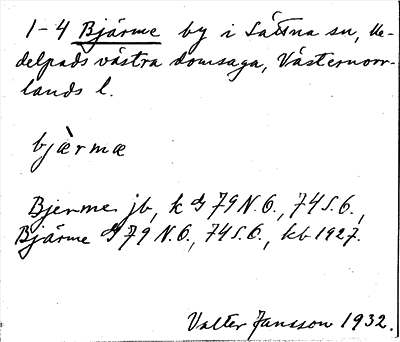 1-4 Bjärme by i Sättna sn, Me-
delpads västra domsaga, Västernorr-
lands l.
bjærmæ
Bjerme jb, k 79 N.O., 74 S.O.,
Bjärme 79 N.O., 74 S.O., kb 1927.
Valter Jansson 1932.